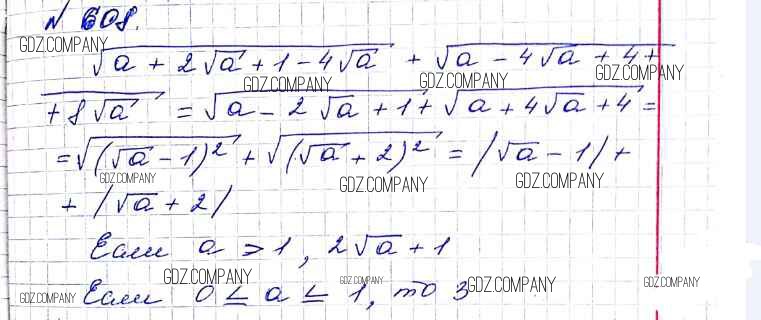 N 608.
GDZ.COMPANY
√(a + 2√a + 1 - 4√a) + √(a - 4√a + 4 +
GDZ.COMPANY GDZ.COMPANY GDZ.COMPANY
+ 8√a) = √(a - 2√a + 1) + √(a + 4√a + 4) =
= √((√a - 1)²) + √((√a + 2)²) = /√a - 1/ +
GDZ.COMPANY GDZ.COMPANY GDZ.COMPANY
+ /√a + 2/
Если a > 1, 2√a + 1
GDZ.COMPANY GDZ.COMPANY GDZ.COMPANY GDZ.COMPANY GDZ.COMPANY
Если 0 ≤ a ≤ 1, то 3